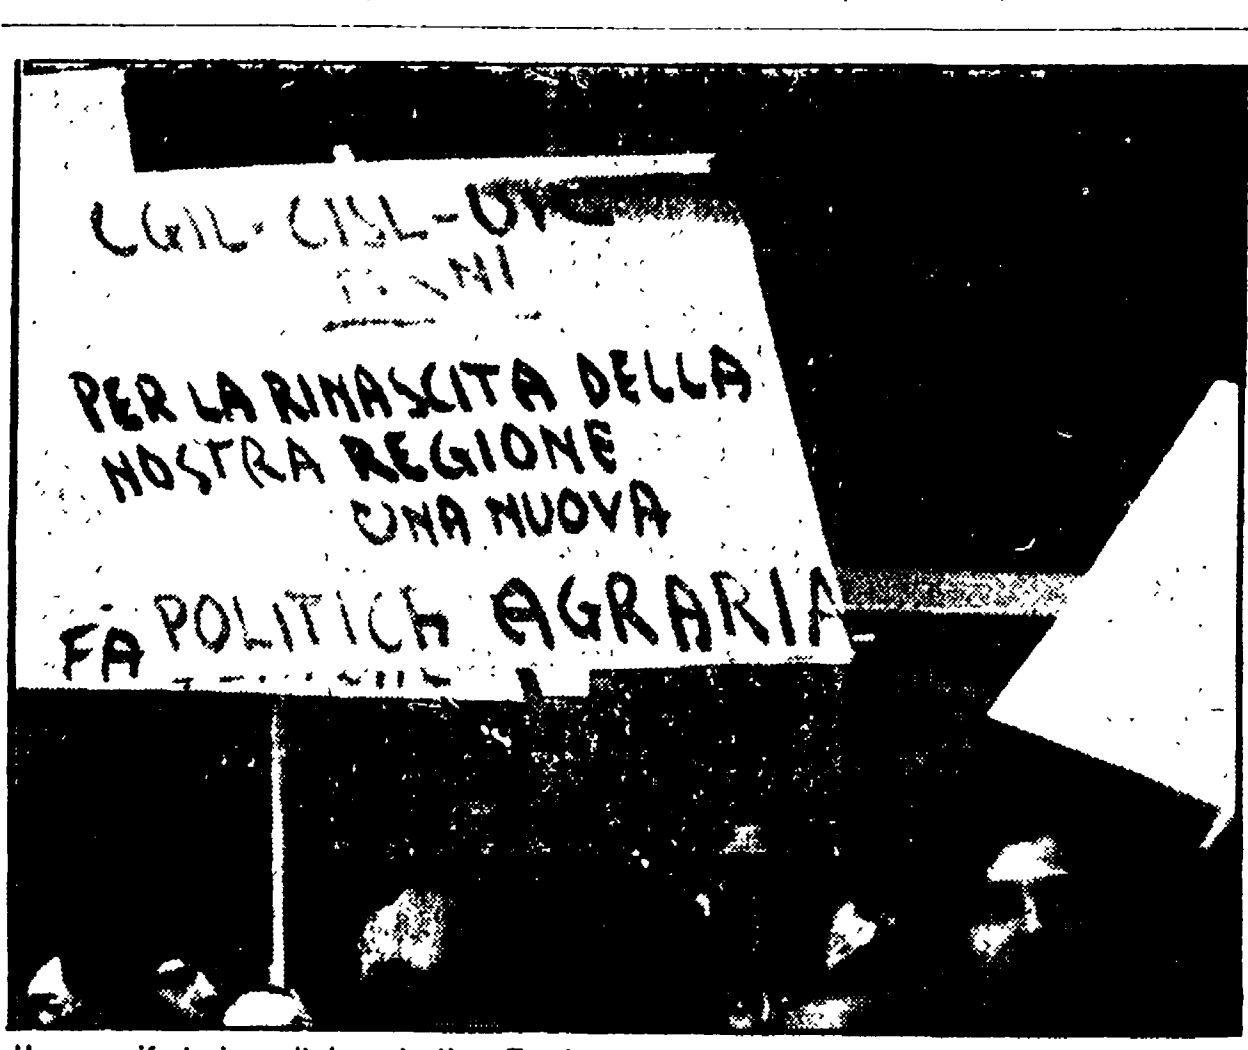 CGIL-CISL-UIL
PER LA RINASCITA DELLA
NOSTRA REGIONE
UNA NUOVA
POLITICA AGRARIA
FA